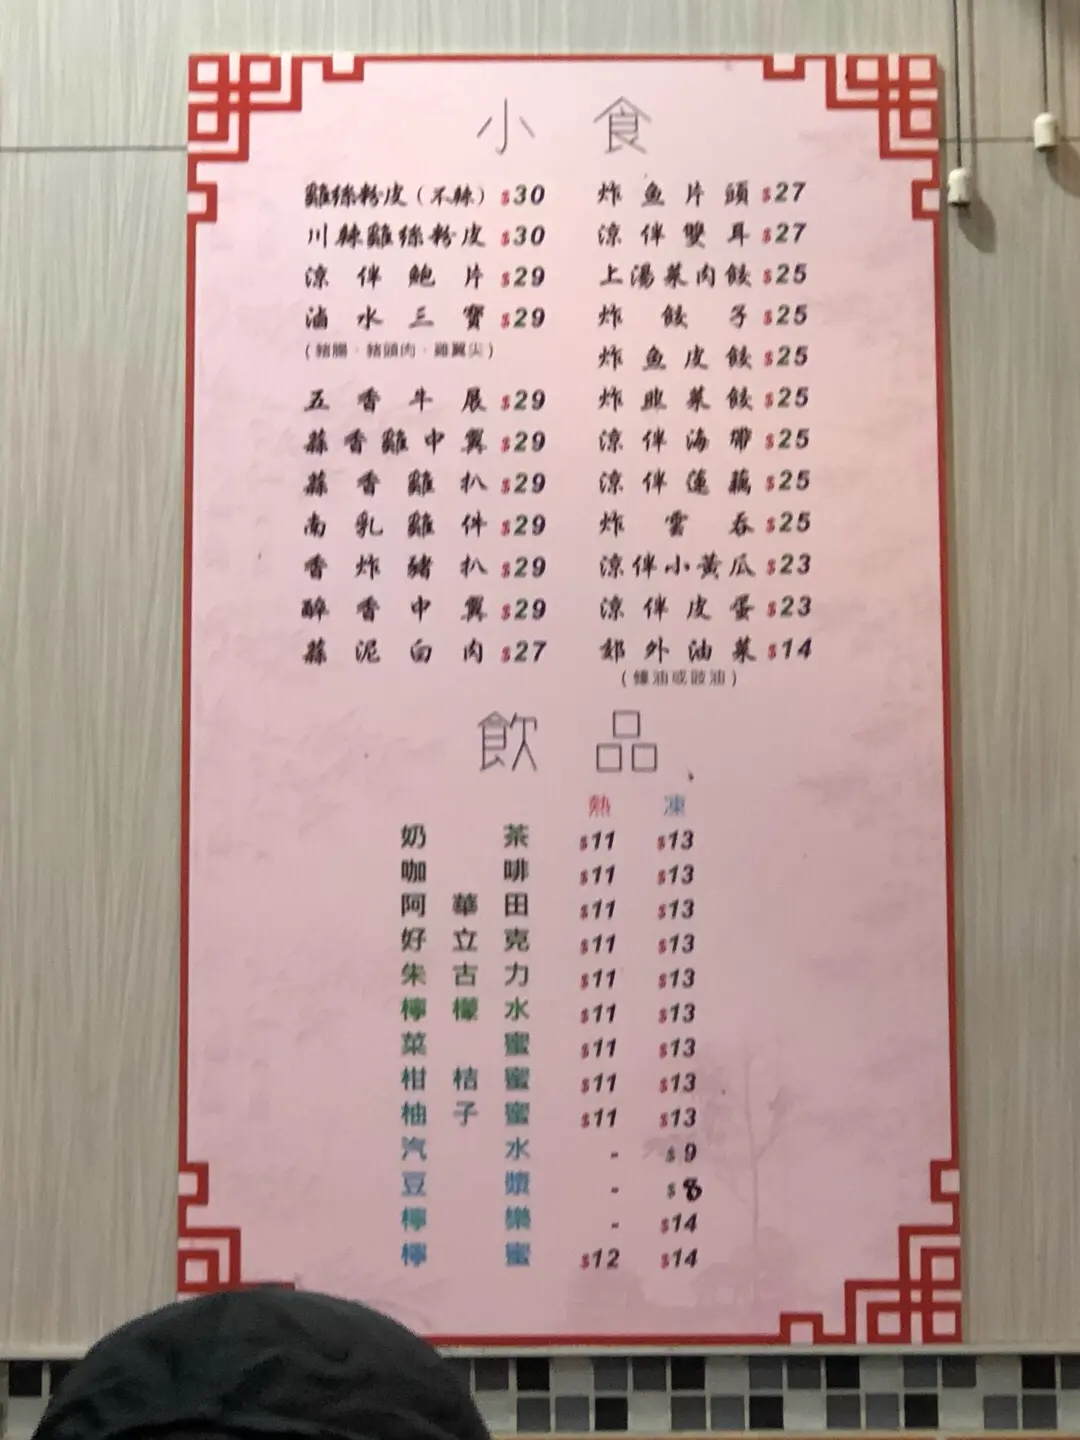 小食
雞絲粉皮（不辣） $30
川辣雞絲粉皮 $30
涼伴鮑片 $29
滷水三寶 $29
（豬腸．豬頭肉．雞翼尖）
五香牛展 $29
蒜香雞中翼 $29
蒜香雞扒 $29
南乳雞件 $29
香炸豬扒 $29
醉香中翼 $29
蒜泥白肉 $27
炸魚片頭 $27
涼伴雙耳 $27
上湯菜肉餃 $25
炸餃子 $25
炸魚皮餃 $25
炸韭菜餃 $25
涼伴海帶 $25
涼伴蓮藕 $25
炸雲吞 $25
涼伴小黃瓜 $23
涼伴皮蛋 $23
郊外油菜 $14
（蠔油或豉油）
飲品
熱 凍
奶茶 $11 $13
咖啡 $11 $13
阿華田 $11 $13
好立克 $11 $13
朱古力 $11 $13
檸檬水 $11 $13
菜蜜 $11 $13
柑桔蜜 $11 $13
柚子蜜 $11 $13
汽水 - $9
豆漿 - $8
檸樂 - $14
檸蜜 $12 $14